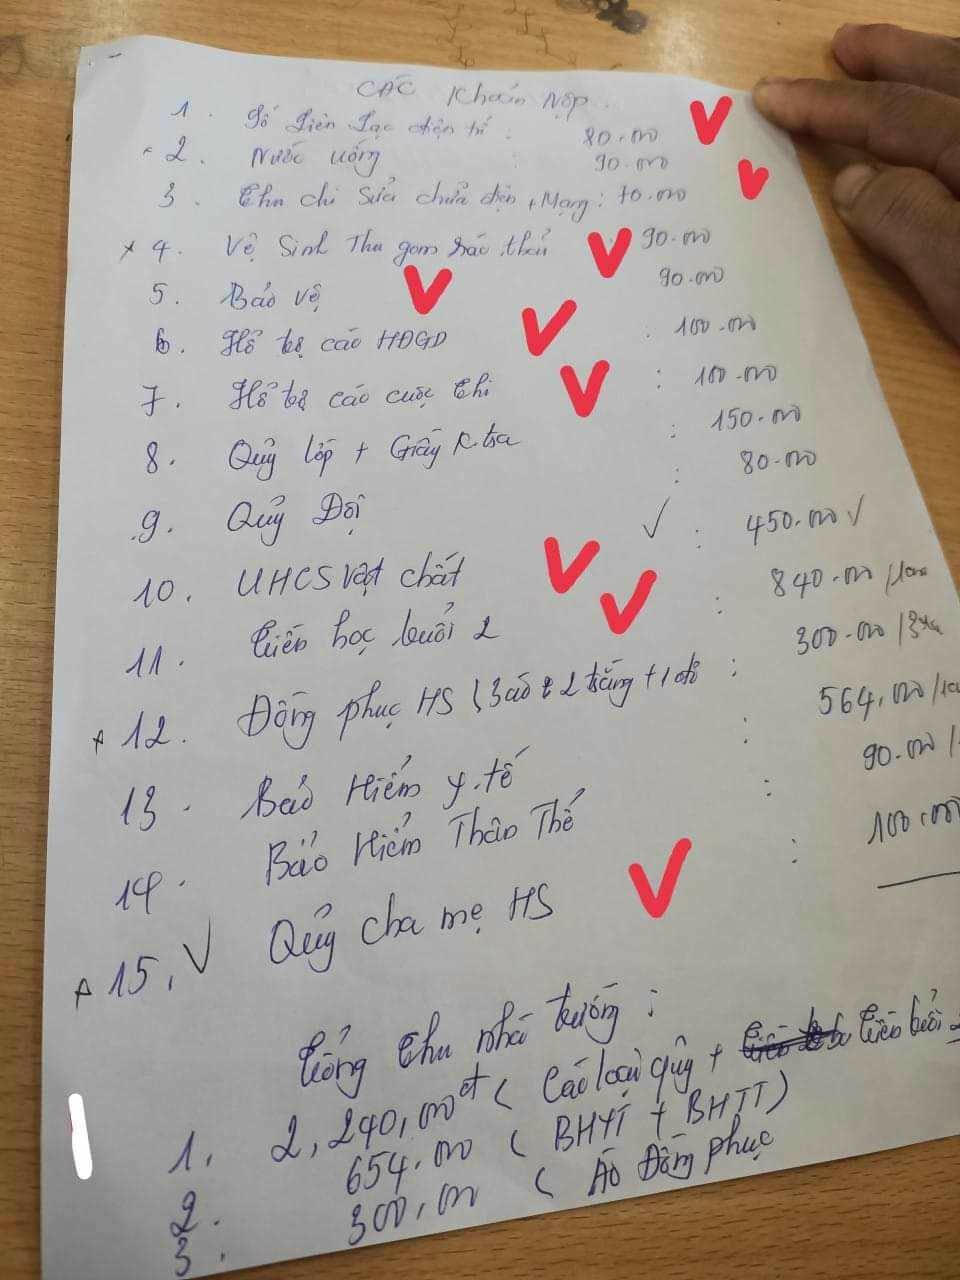 CÁC Khoản Nộp
1. Sổ Liên Lạc điện tử : 80.000
2. Nước uống : 90.000
3. Thu chi Sửa chữa điện + Mạng : 70.000
4. Vệ Sinh Thu gom rác thải 90.000
5. Bảo vệ 90.000
6. Hổ trợ các HĐGD : 100.000
7. Hổ trợ các cuộc thi : 100.000
8. Quỷ lớp + Giấy K.tra : 150.000
9. Quỷ Đội : 80.000
10. UHCS vật chất : 450.000
11. tiền học buổi 2 : 840.000
12. Đồng phục HS (3 áo 2 trắng + 1 đỏ : 300.000
13. Bảo Hiểm y.tế : 564.000
14. Bảo Hiểm Thân Thể : 90.000
15. Quỷ cha mẹ HS : 100.000
Tổng thu nhà trường :
1. 2,240,000đ ( Các loại quỹ + tiền buổi 2
2. 654.000 ( BHYT + BHTT)
3. 300,000 ( Áo Đồng phục